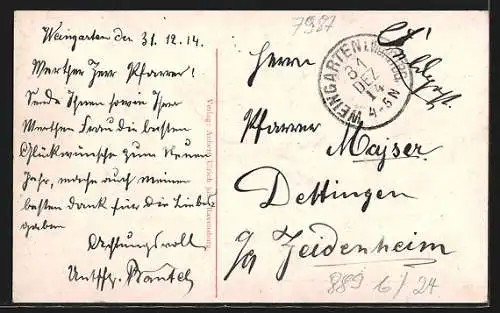 Weingarten den 31.12.14.
Werther Herr Pfarrer!
Sende Ihnen sowie Ihrer
Werthen Frau die besten
Glückwünsche zum Neuen
Jahr, mache auch meinen
besten Dank für die Liebes
gaben
Achtungsvoll
Untffz. Bantel
Verlag Ravensburg
7987
WEINGARTEN (WÜRTTBG)
31
DEZ
14
4-5N
Feldpost.
Herrn
Pfarrer
Majser
Dettingen
Heidenheim
889 6/24